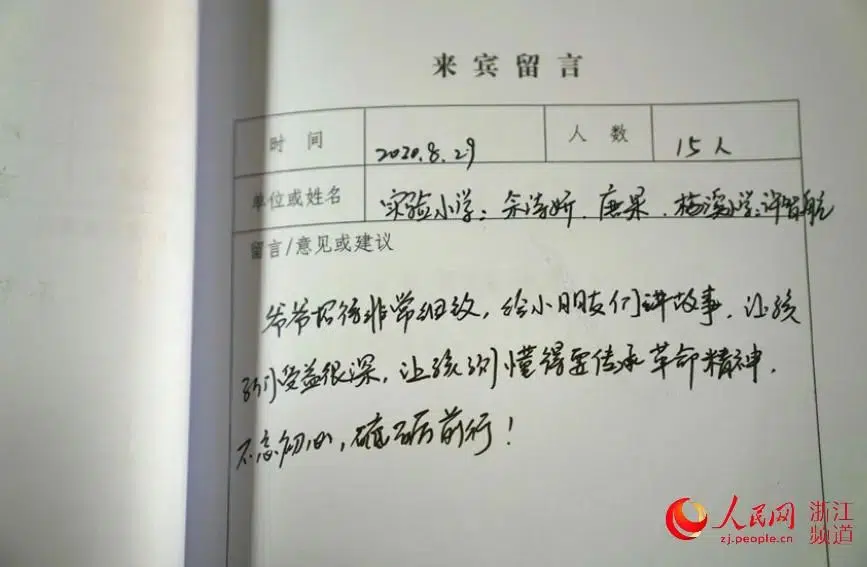 来宾留言
时间 2020.8.29 人数 15人
单位或姓名 实验小学：余诗妍、唐果、梅溪小学：许智航
留言/意见或建议
爷爷招待非常细致，给小朋友们讲故事，让孩
子们受益很深，让孩子们懂得要传承革命精神，
不忘初心，砥砺前行！
人民网 浙江
zj.people.cn 频道